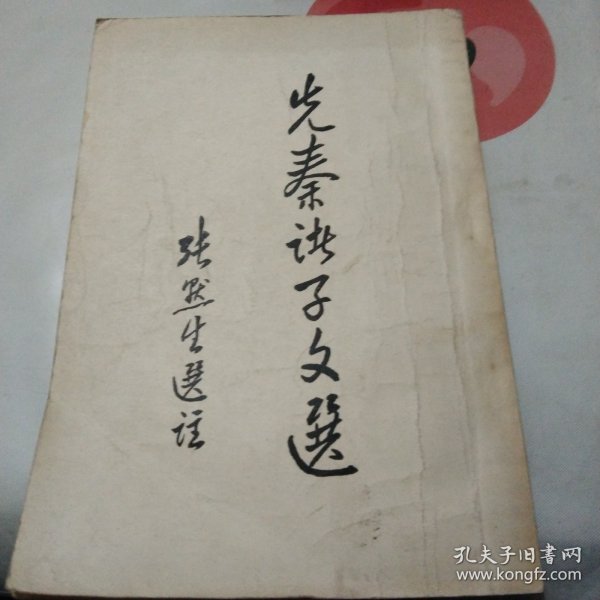 先秦諸子文選
張默生選註
孔夫子旧書网
www.kongfz.com